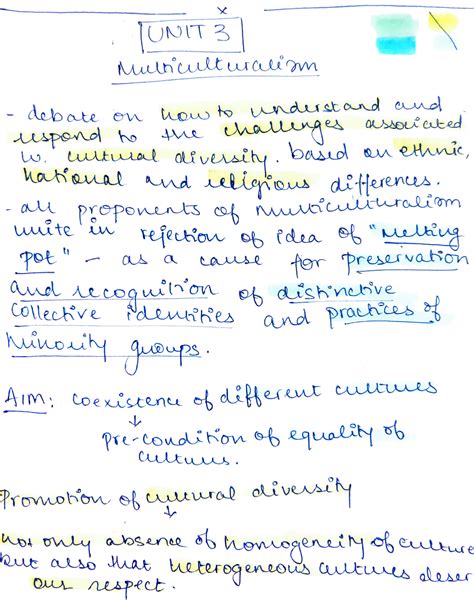 x
UNIT 3
Multiculturalism
- debate on how to understand and
respond to the challenges associated
w. cultural diversity. based on ethnic,
national and religious differences.
- all proponents of multiculturalism
unite in rejection of idea of "melting
pot" - as a cause for preservation
and recognition of distinctive
collective identities and practices of
minority groups.
AIM: coexistence of different cultures
↓
pre-condition of equality of
cultures.
Promotion of cultural diversity
↓
not only absence of homogeneity of culture
but also that heterogeneous cultures deser
our respect.